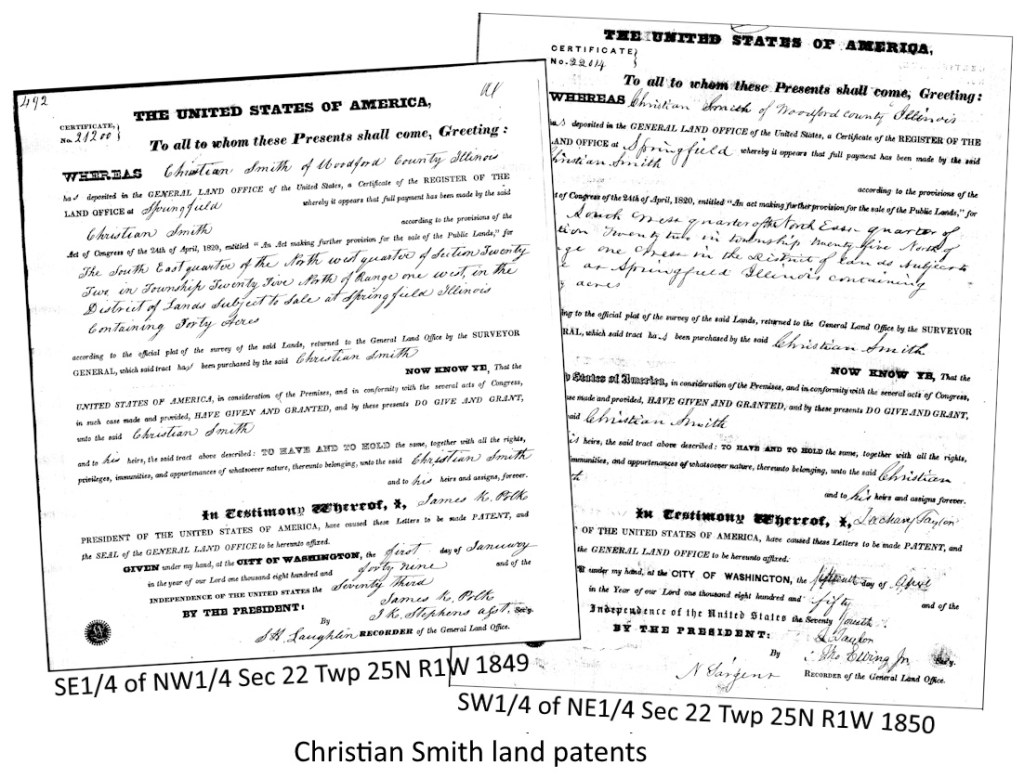 492
THE UNITED STATES OF AMERICA,
CERTIFICATE
No. 21200
To all to whom these Presents shall come, Greeting:
WHEREAS Christian Smith of Woodford County Illinois
has deposited in the GENERAL LAND OFFICE of the United States, a Certificate of the REGISTER OF THE
LAND OFFICE at Springfield whereby it appears that full payment has been made by the said
Christian Smith
according to the provisions of the
Act of Congress of the 24th of April, 1820, entitled "An Act making further provision for the sale of the Public Lands," for
The South East quarter of the North west quarter of Section Twenty
Two in Township Twenty Five North of Range one west, in the
District of Lands Subject to Sale at Springfield Illinois
Containing Forty Acres
according to the official plat of the survey of the said Lands, returned to the General Land Office by the SURVEYOR
GENERAL, which said tract has been purchased by the said Christian Smith
NOW KNOW YE, That the
UNITED STATES OF AMERICA, in consideration of the Premises, and in conformity with the several acts of Congress,
in such case made and provided, HAVE GIVEN AND GRANTED, and by these presents DO GIVE AND GRANT,
unto the said Christian Smith
and to his heirs, the said tract above described: TO HAVE AND TO HOLD the same, together with all the rights,
privileges, immunities, and appurtenances of whatsoever nature, thereunto belonging, unto the said Christian Smith
and to his heirs and assigns, forever.
In Testimony Whereof, I, James K. Polk
PRESIDENT OF THE UNITED STATES OF AMERICA, have caused these Letters to be made PATENT, and
the SEAL of the GENERAL LAND OFFICE to be hereunto affixed.
GIVEN under my hand, at the CITY OF WASHINGTON, the first day of January
in the year of our Lord one thousand eight hundred and forty nine and of the
INDEPENDENCE OF THE UNITED STATES the Seventy third
BY THE PRESIDENT: James K. Polk
By J. K. Stephens asst. Sec'y.
S. H. Laughlin RECORDER of the General Land Office.
SE1/4 of NW1/4 Sec 22 Twp 25N R1W 1849
THE UNITED STATES OF AMERICA,
CERTIFICATE
No. 22014
To all to whom these Presents shall come, Greeting:
WHEREAS Christian Smith of Woodford County Illinois
has deposited in the GENERAL LAND OFFICE of the United States, a Certificate of the REGISTER OF THE
LAND OFFICE at Springfield whereby it appears that full payment has been made by the said
Christian Smith
according to the provisions of the
Act of Congress of the 24th of April, 1820, entitled "An act making further provision for the sale of the Public Lands," for
South West quarter of the North East quarter of
Twenty two in Township Twenty five North of
one West in the District of Lands Subject to
at Springfield Illinois containing
acres
to the official plat of the survey of the said Lands, returned to the General Land Office by the SURVEYOR
which said tract has been purchased by the said Christian Smith
NOW KNOW YE, That the
States of America, in consideration of the Premises, and in conformity with the several acts of Congress,
made and provided, HAVE GIVEN AND GRANTED, and by these presents DO GIVE AND GRANT,
said Christian Smith
heirs, the said tract above described: TO HAVE AND TO HOLD the same, together with all the rights,
immunities, and appurtenances of whatsoever nature, thereunto belonging, unto the said Christian
and to his heirs and assigns forever.
In Testimony Whereof, I, Zachary Taylor
OF THE UNITED STATES OF AMERICA, have caused these Letters to be made PATENT, and
the GENERAL LAND OFFICE to be hereunto affixed.
under my hand, at the CITY OF WASHINGTON, the day of April
in the Year of our Lord one thousand eight hundred and fifty and of the
Independence of the United States the Seventy fourth
BY THE PRESIDENT: Z Taylor
By Tho Ewing Jr Sec'y.
N Sargent RECORDER of the General Land Office.
SW1/4 of NE1/4 Sec 22 Twp 25N R1W 1850
Christian Smith land patents